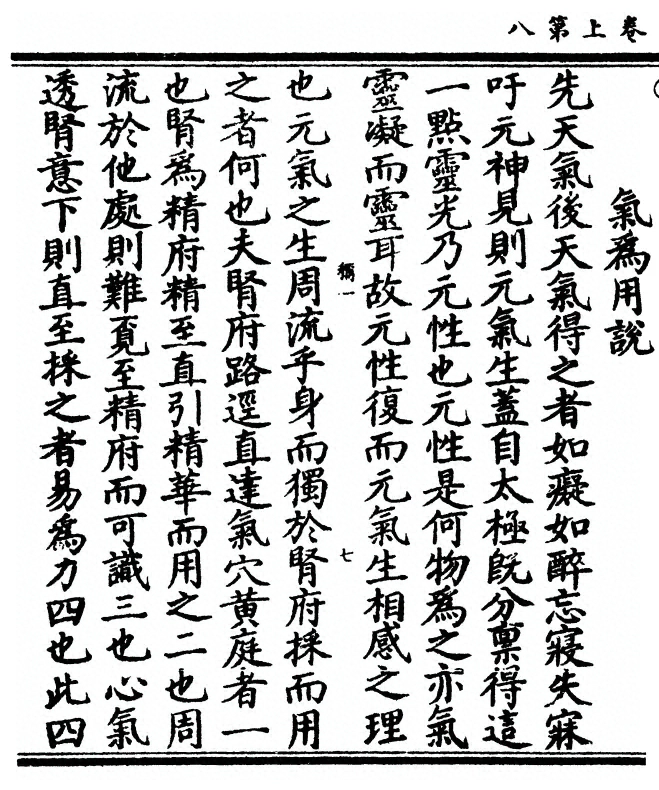 卷上第八
氣爲用說
先天氣後天氣得之者如癡如醉忘寢失寐
吁元神見則元氣生蓋自太極旣分禀得這
一點靈光乃元性也元性是何物爲之亦氣
靈凝而靈耳故元性復而元氣生相感之理
稱一
七
也元氣之生周流乎身而獨於腎府採而用
之者何也夫腎府路逕直達氣穴黃庭者一
也腎爲精府精至直引精華而用之二也周
流於他處則難覓至精府而可識三也心氣
透腎意下則直至採之者易爲力四也此四